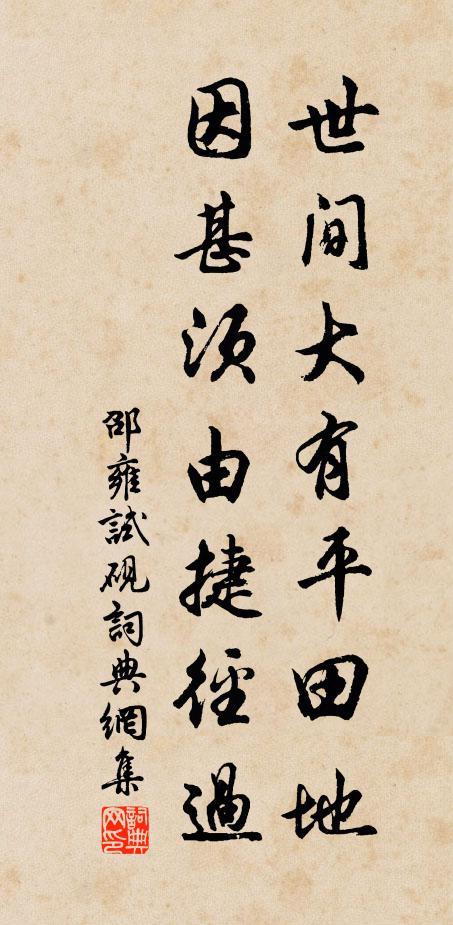 世間大有平田地
因甚須由捷徑過
邵雍試硯詞典網集
詞典
网印